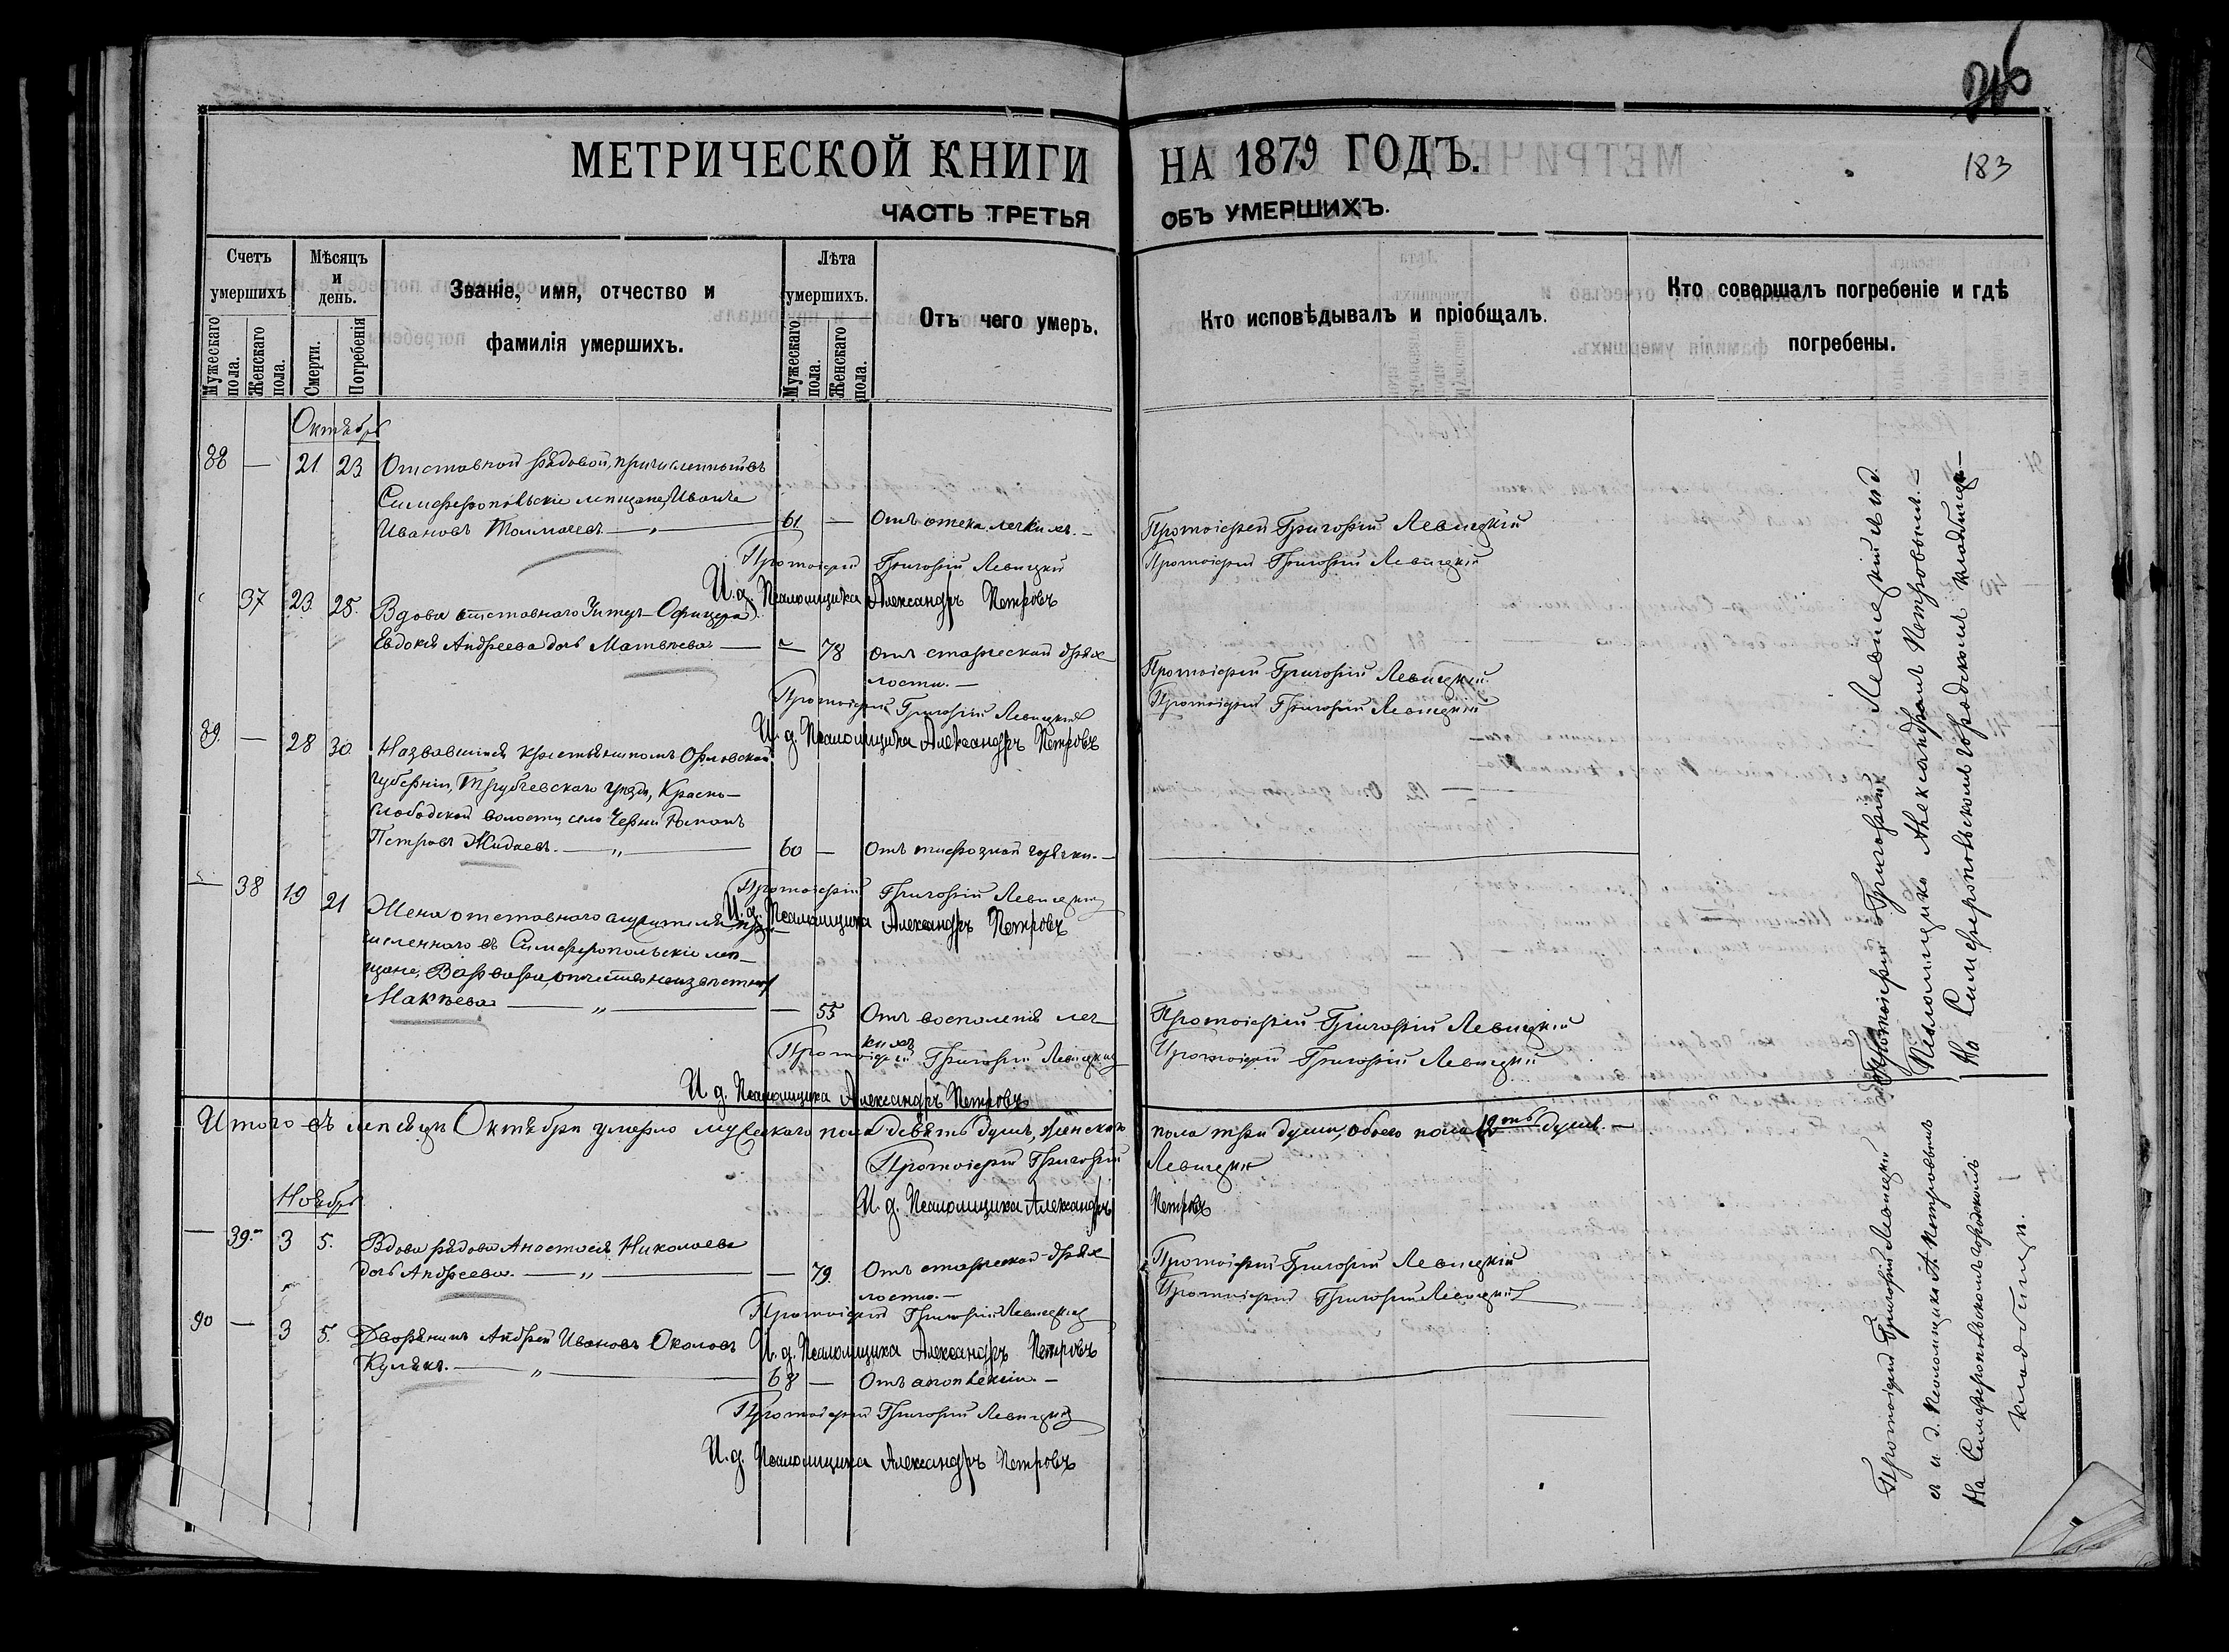 216
183
МЕТРИЧЕСКОЙ КНИГИ НА 1879 ГОДЪ.
ЧАСТЬ ТРЕТЬЯ ОБЪ УМЕРШИХЪ.
Счетъ умершихъ
Мужескаго пола.
Женскаго пола.
Мѣсяцъ и день.
Смерти.
Погребенія
Званіе, имя, отчество и
фамилія умершихъ.
Лѣта умершихъ.
Мужескаго пола.
Женскаго пола.
Отъ чего умеръ.
Кто исповѣдывалъ и пріобщалъ.
Кто совершалъ погребеніе и гдѣ
погребены.
Октябрь
88 — 21 23 Отставной рядовой, причисленный въ
Симферопольскіе мѣщане, Иванъ
Ивановъ Толмачевъ — „ — 61 — Отъ отека легкихъ. —
Протоіерей Григорій Левицкій
И. д. Псаломщика Александръ Петровъ
Протоіерей Григорій Левицкій
Протоіерей Григорій Левицкій
37 23 25. Вдова отставного Унтеръ-Офицера
Евдокія Андреева дочь Матвѣева — — 78 Отъ старческой дрях-
лости. —
Протоіерей Григорій Левицкій
И. д. Псаломщика Александръ Петровъ
Протоіерей Григорій Левицкій.
Протоіерей Григорій Левицкій
89. — 28 30 Назвавшійся крестьяниномъ Орловской
губерніи, Трубчевскаго уѣзда, Красно-
слободской волости, села Черни Романъ
Петровъ Жидаевъ. — „ — 60 — Отъ тифозной горячки. —
Протоіерей Григорій Левицкій
И. д. Псаломщика Александръ Петровъ
— 38 19 21 Жена отставного служителя, при-
численнаго въ Симферопольскіе мѣ-
щане, Варвара, отчество неизвѣстно,
Макѣева — „ — — 55 Отъ воспаленія лег-
кихъ
Протоіерей Григорій Левицкій
И. д. Псаломщика Александръ Петровъ
Протоіерей Григорій Левицкій
Протоіерей Григорій Левицкій
Протоіерей Григорій Левицкій съ и д.
Псаломщика Александромъ Петровымъ. —
На Симферопольскомъ городскомъ кладбищѣ —
Итого въ мѣсяцѣ Октябрѣ умерло мужескаго пола девять душъ, женскаго пола три души, обоего пола 12ть душъ. —
Протоіерей Григорій Левицкій
И. д. Псаломщика Александръ Петровъ
Ноябрь
— 39. 3 5. Вдова рядова Анастасія Николаева
дочь Андреева. — „ — — 79. Отъ старческой дрях-
лости. —
Протоіерей Григорій Левицкій
И. д. Псаломщика Александръ Петровъ
Протоіерей Григорій Левицкій
Протоіерей Григорій Левицкій
90 — 3 5. Дворянинъ Андрей Ивановъ Околовъ
Кулякъ. — „ — 68 — Отъ апоплексіи. —
Протоіерей Григорій Левицкій
И. д. Псаломщика Александръ Петровъ
Протоіерей Григорій Левицкій
съ и д. Псаломщика А. Петровымъ
На Симферопольскомъ городскомъ
кладбищѣ.